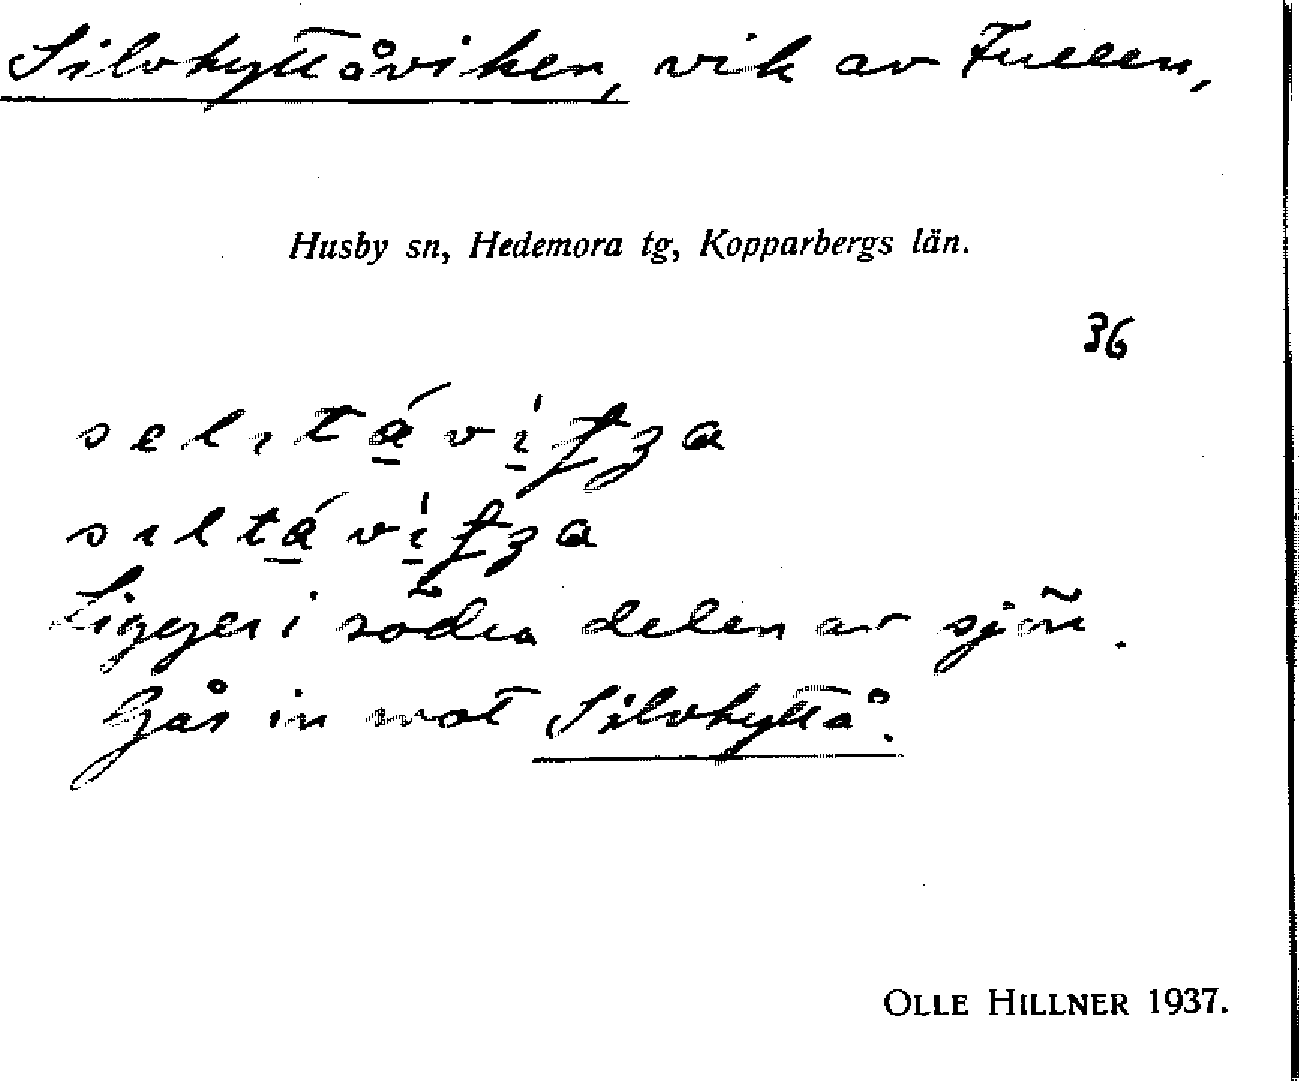 Silvhyttåviken, vik av Fullen,
Husby sn, Hedemora tg, Kopparbergs län.
36
Ligger i södra delen av sjön.
Går in mot Silvhyttå.
OLLE HILLNER 1937.